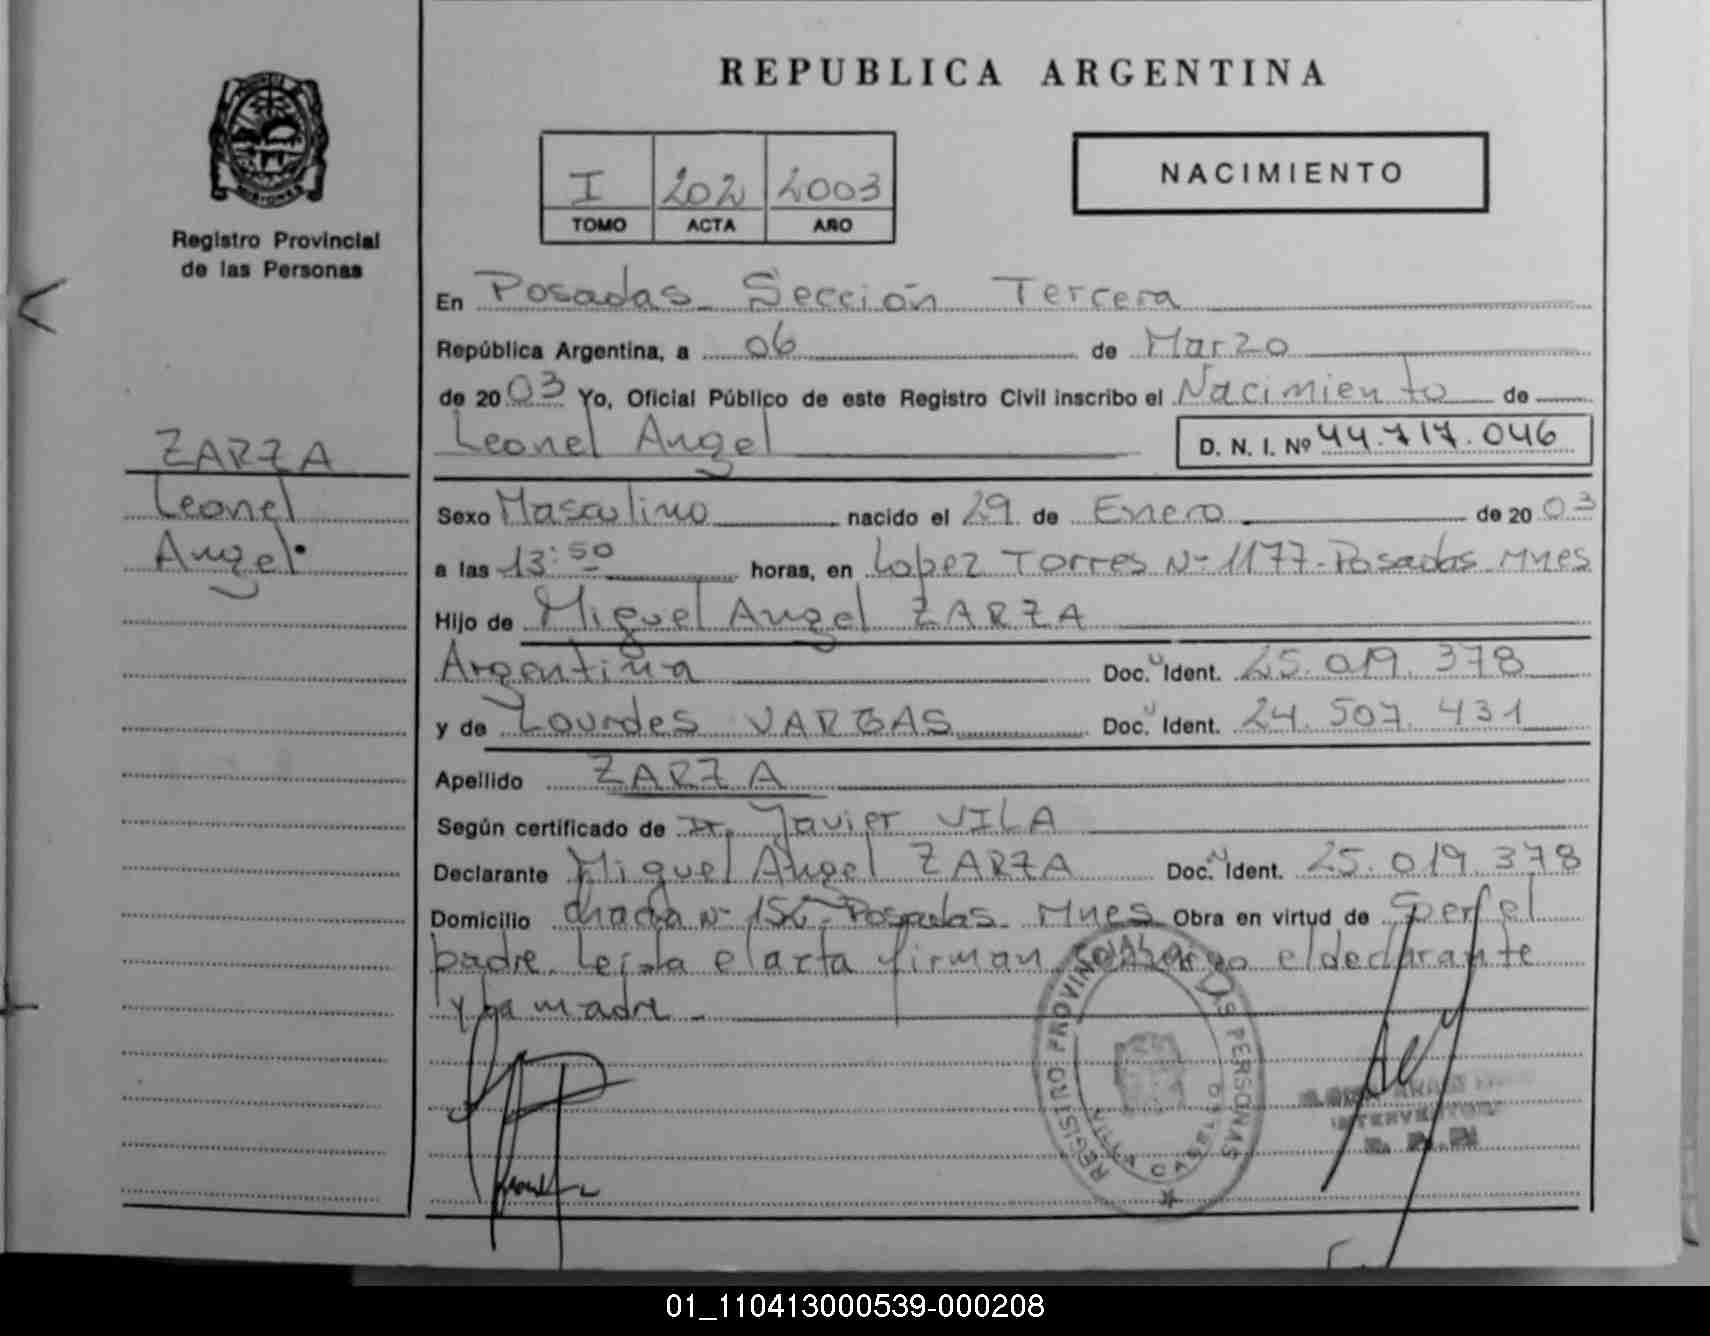 REPUBLICA ARGENTINA
MISIONES
Registro Provincial
de las Personas
I 202 2003
TOMO ACTA AÑO
NACIMIENTO
En Posadas Sección Tercera
República Argentina, a 06 de Marzo
de 2003 Yo, Oficial Público de este Registro Civil inscribo el Nacimiento de
Leonel Angel D. N. I. Nº 44.717.046
ZARZA
Leonel
Angel
Sexo Masculino nacido el 29 de Enero de 2003
a las 13:50 horas, en Lopez Torres Nº 1177-Posadas Mnes
Hijo de Miguel Angel ZARZA
Argentina Doc. Ident. 25.019.378
y de Lourdes VARGAS Doc. Ident. 24.507.431
Apellido ZARZA
Según certificado de Dr. Javier VILA
Declarante Miguel Angel ZARZA Doc. Ident. 25.019.378
Domicilio chacra Nº Posadas Mnes Obra en virtud de ser el
padre. Leida el acta firman conmigo el declarante
y la madre -
REGISTRO PROVINCIAL DE LAS PERSONAS
01_110413000539-000208